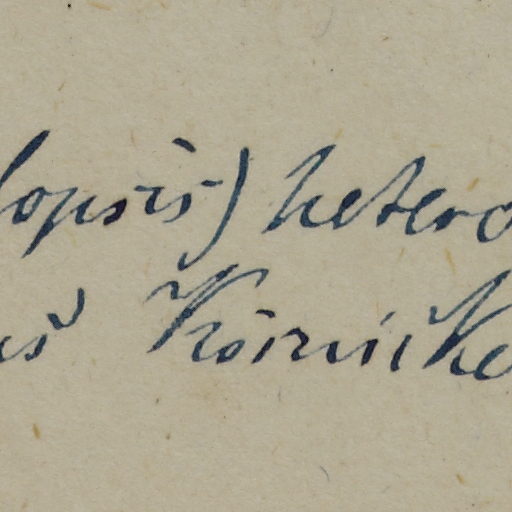 lopsis) hetero
us Körnicke